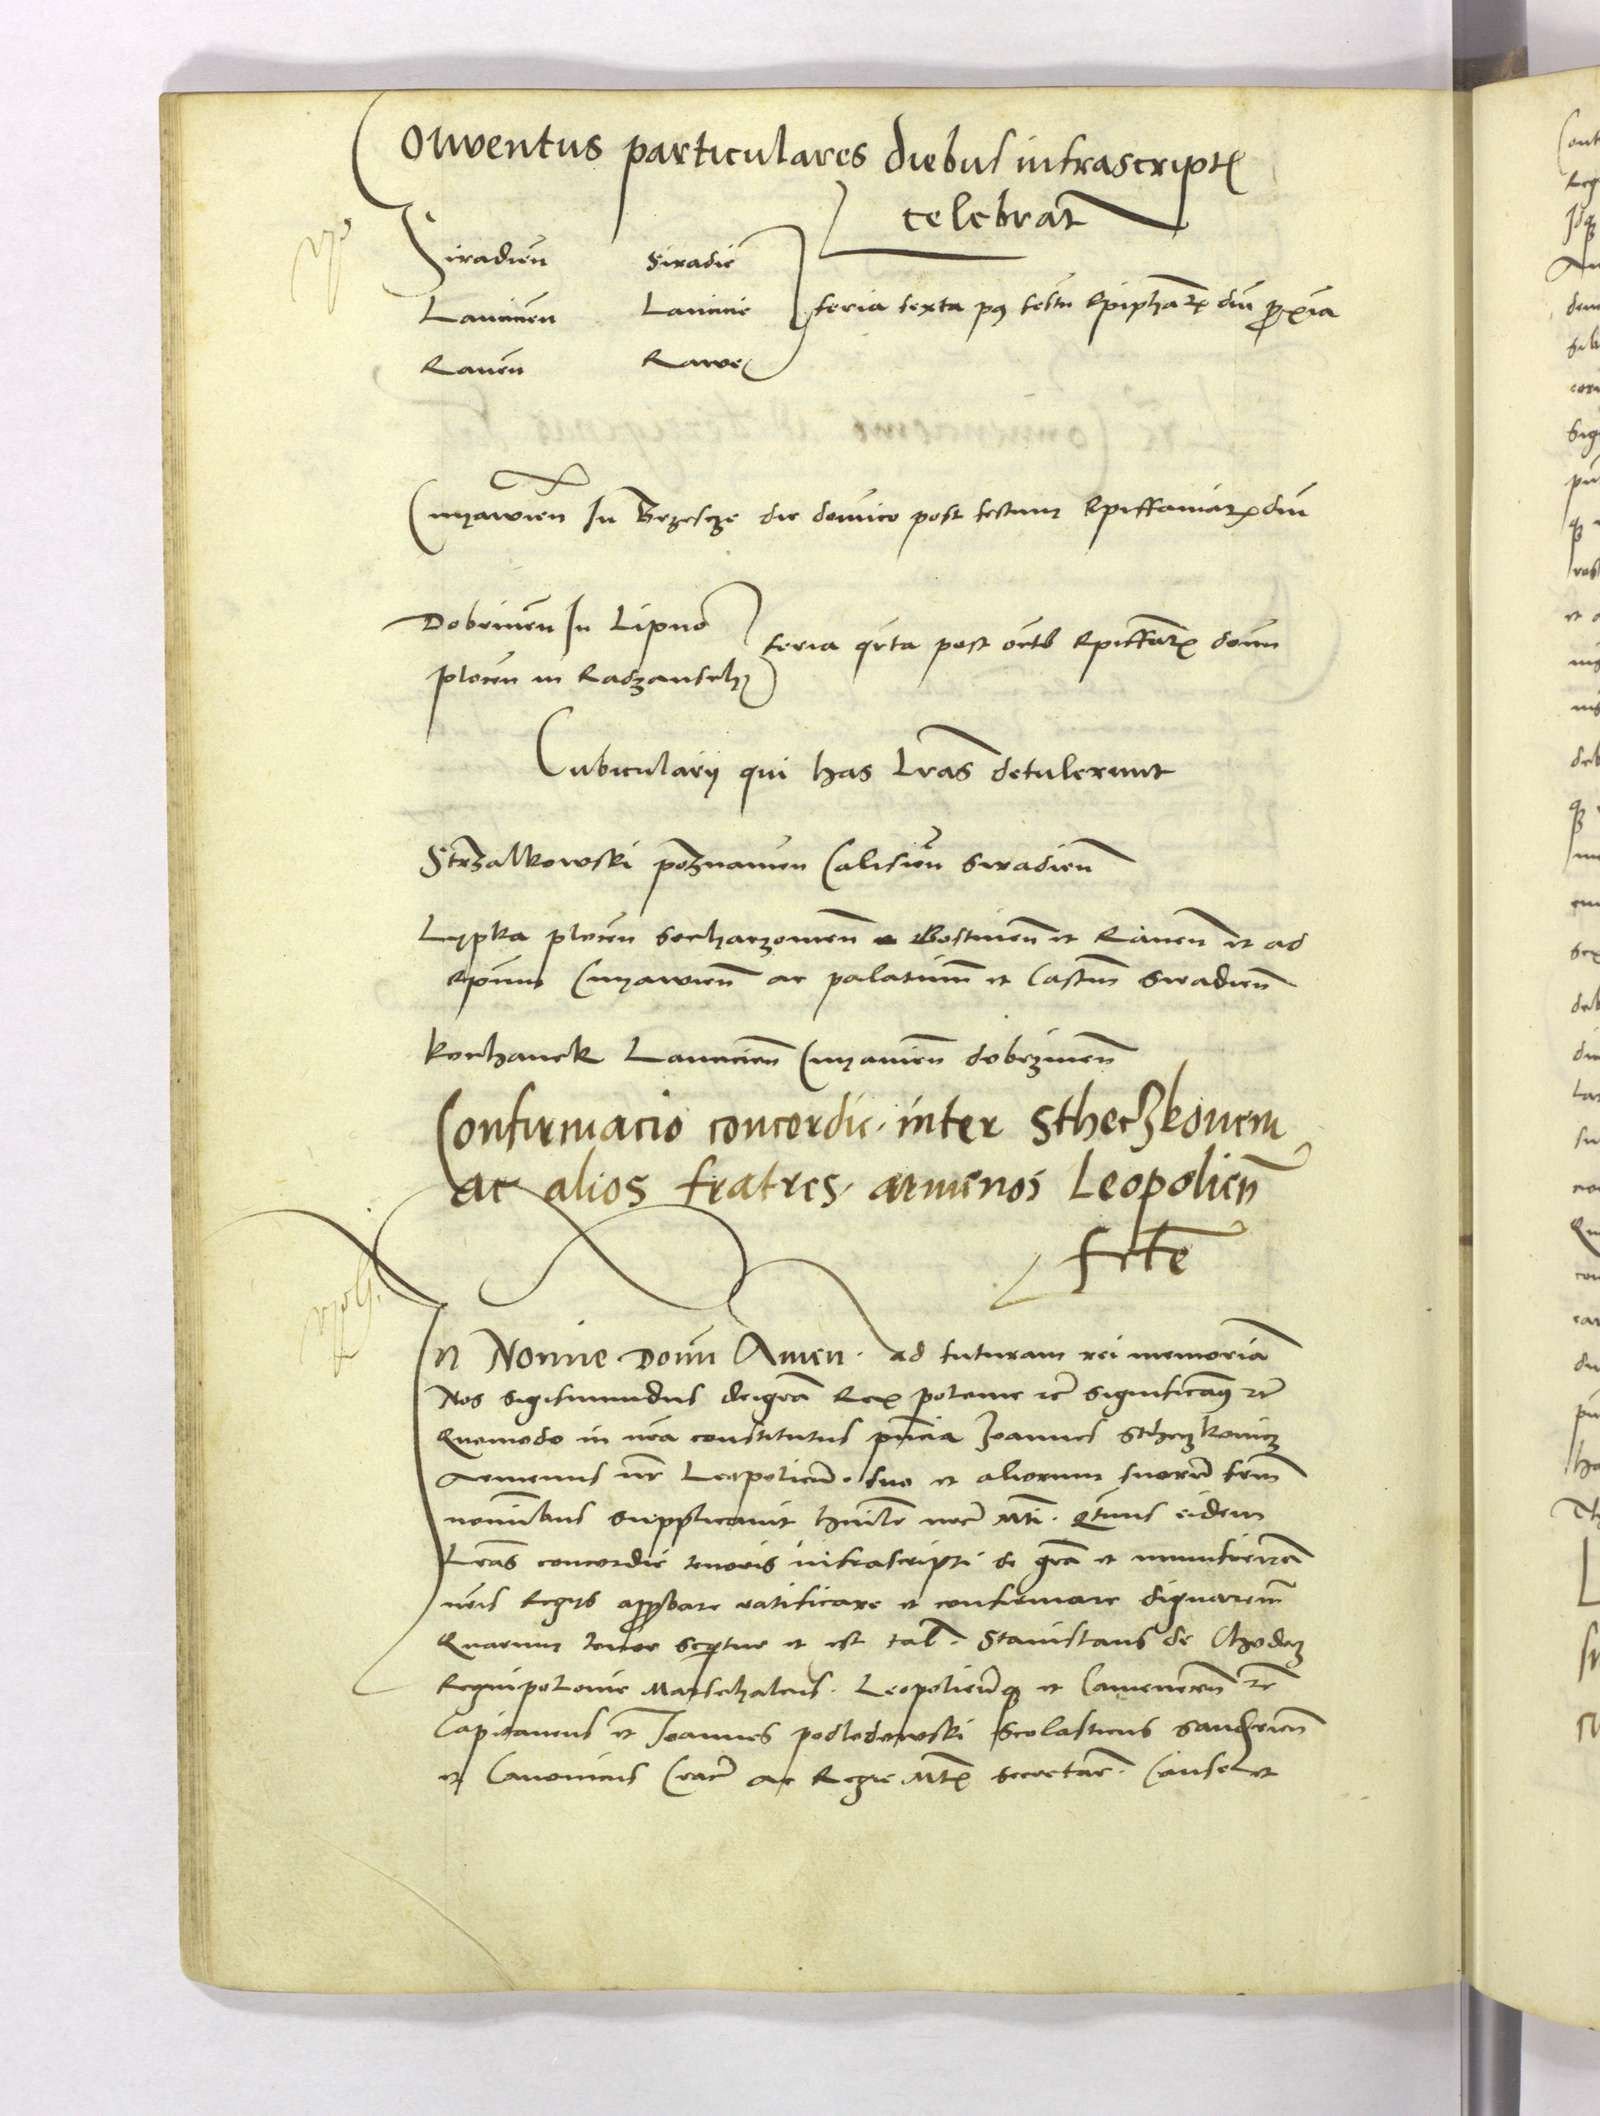 Conventus particulares diebus infrascript
celebrant
Siradien Siradie
Lancicien Lancicie feria sexta post festu Epiphar dni proxia
Raven Rawe
Cuyavien In Brzescze die dominico post festum Epiffaniar dni
Dobrinen In Lipno
feria qrta post octb Epiffar domi
plocen in Radzansch
Cubicularij qui has lras detulerunt
Strzalkowski poznanien Calisien Siradien
Lypka plocen sochaczowien Gostinen et Raven et ad
Epum Cuyavien ac palatinum et Castm Siradien
Kochanek Lancicien Cuyavien dobrzinen
Confirmacio concordie inter Stheczkonem
ac alios fratres armenos Leopolien
frte
In Nomine Domini Amen. ad futuram rei memoria
Nos Sigismundus dei gra Rex polonie etc significamus etc
Quomodo in nra constitutus pncia Joannes Stheczkowicz
armenus nr Leopolien. suo et aliorum suorum frm
nominibus supplicavit humilr nre Mti. Qtinus eidem
Lras concordie tenoris infrascripti de gra et munificentia
nris Regijs approbare ratificare et confirmare dignaremur
Quarum tenor sequitur et est tal. Stanislaus de Chodecz
Regni polonie Marschalcus. Leopolien et Camenecen etc
Capitaneus et Joannes podlodowski Scolasticus Sandomirien
et Canonicus Crac ac Regie Mtis secretar. Causel et